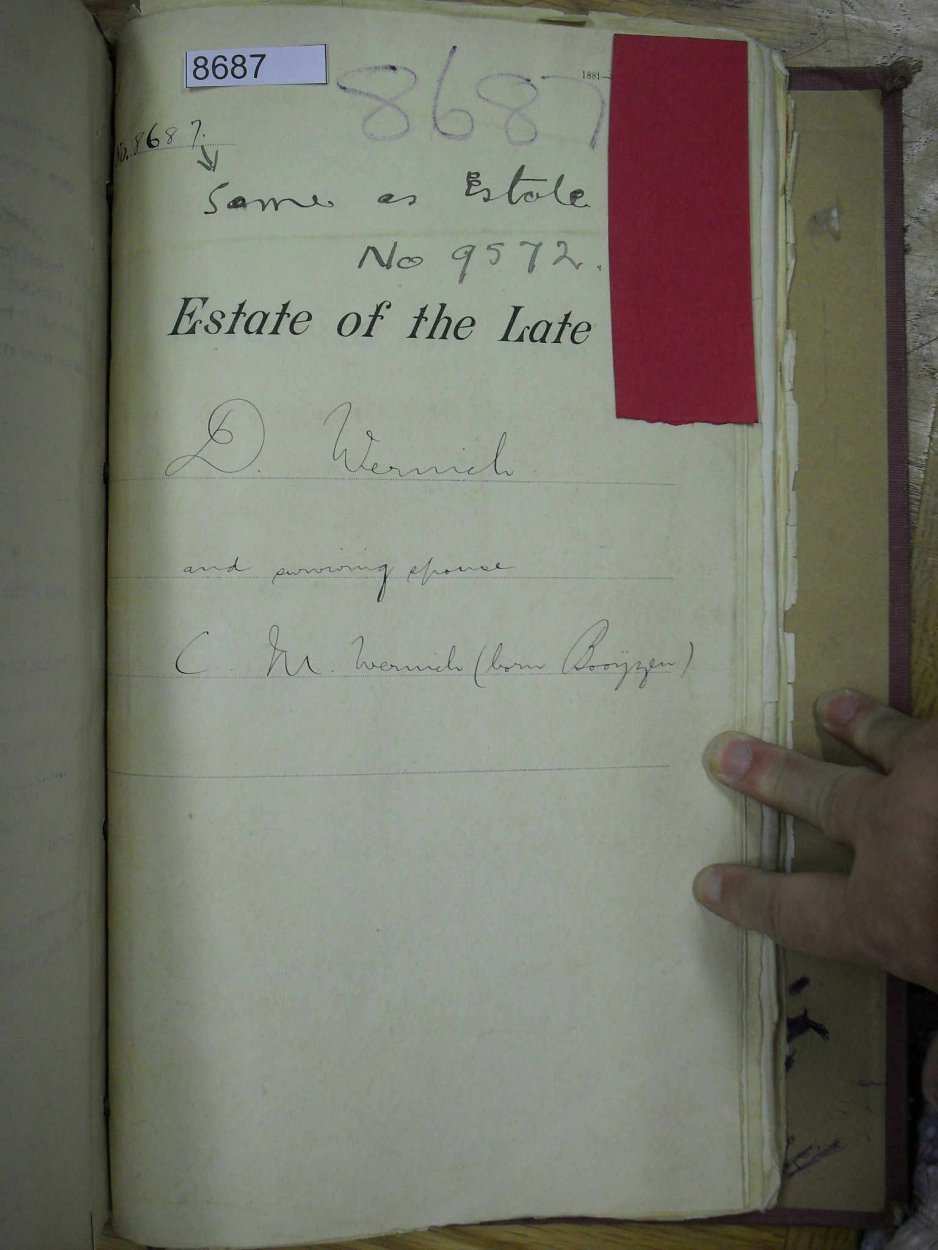 8687
8687
1881—
No. 8687.
Same as Estate
No 9572.
Estate of the Late
D. Wernich
and surviving spouse
C. M. Wernich (born Booÿzen)